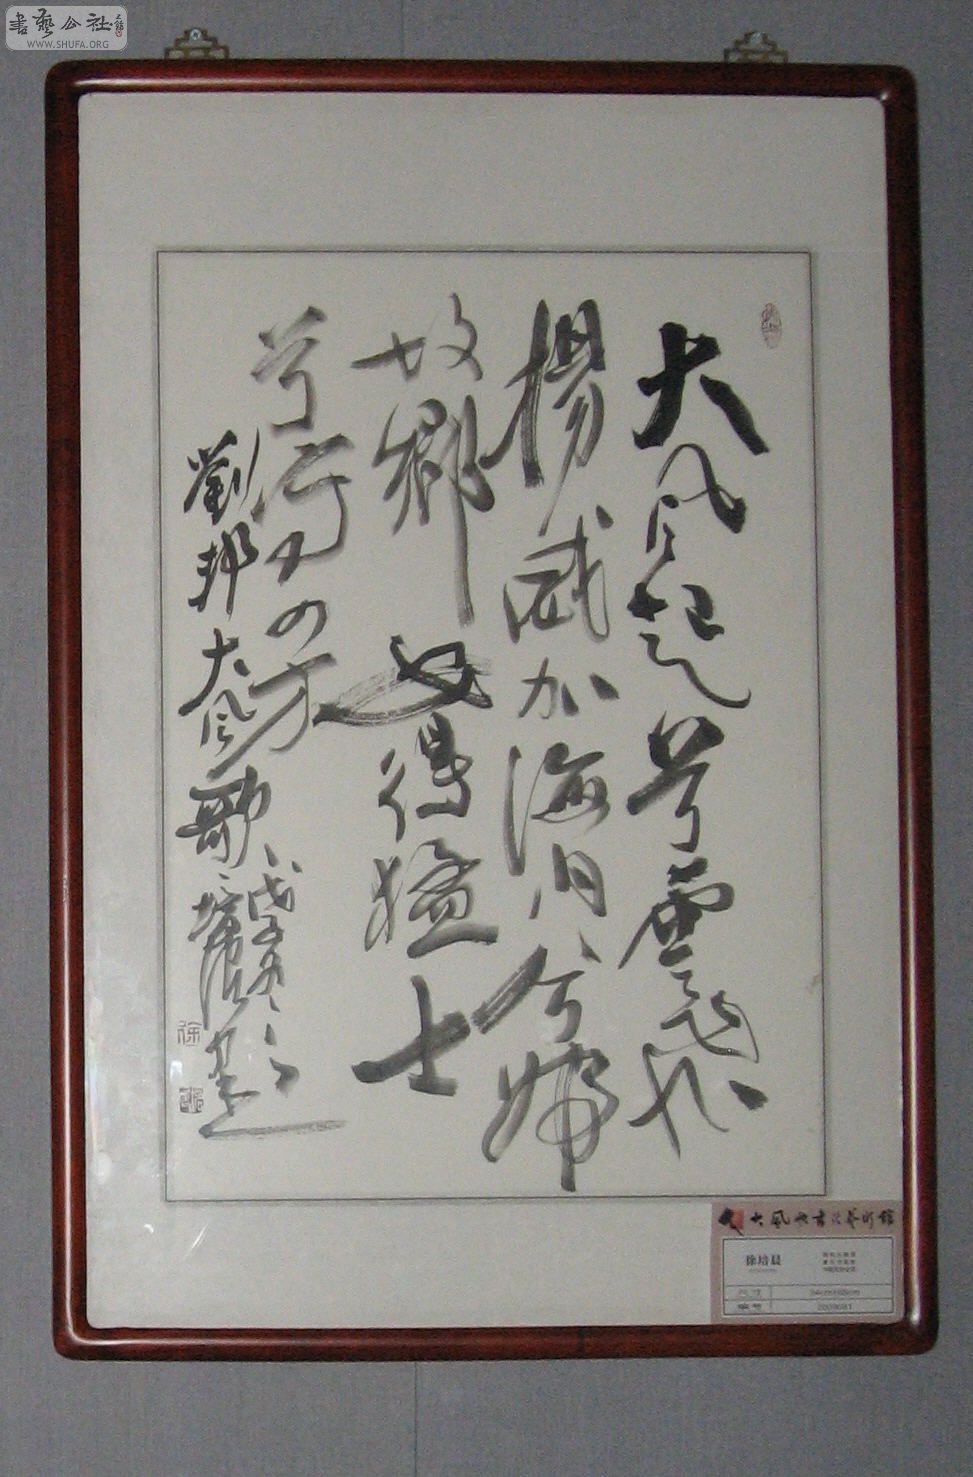 書藝公社
WWW.SHUFA.ORG
大風起兮雲飛
揚威加海內兮歸
故鄉安得猛士
兮守四方
劉邦大風歌
培晨書
大風歌書法藝術館
徐培晨
尺寸
编号